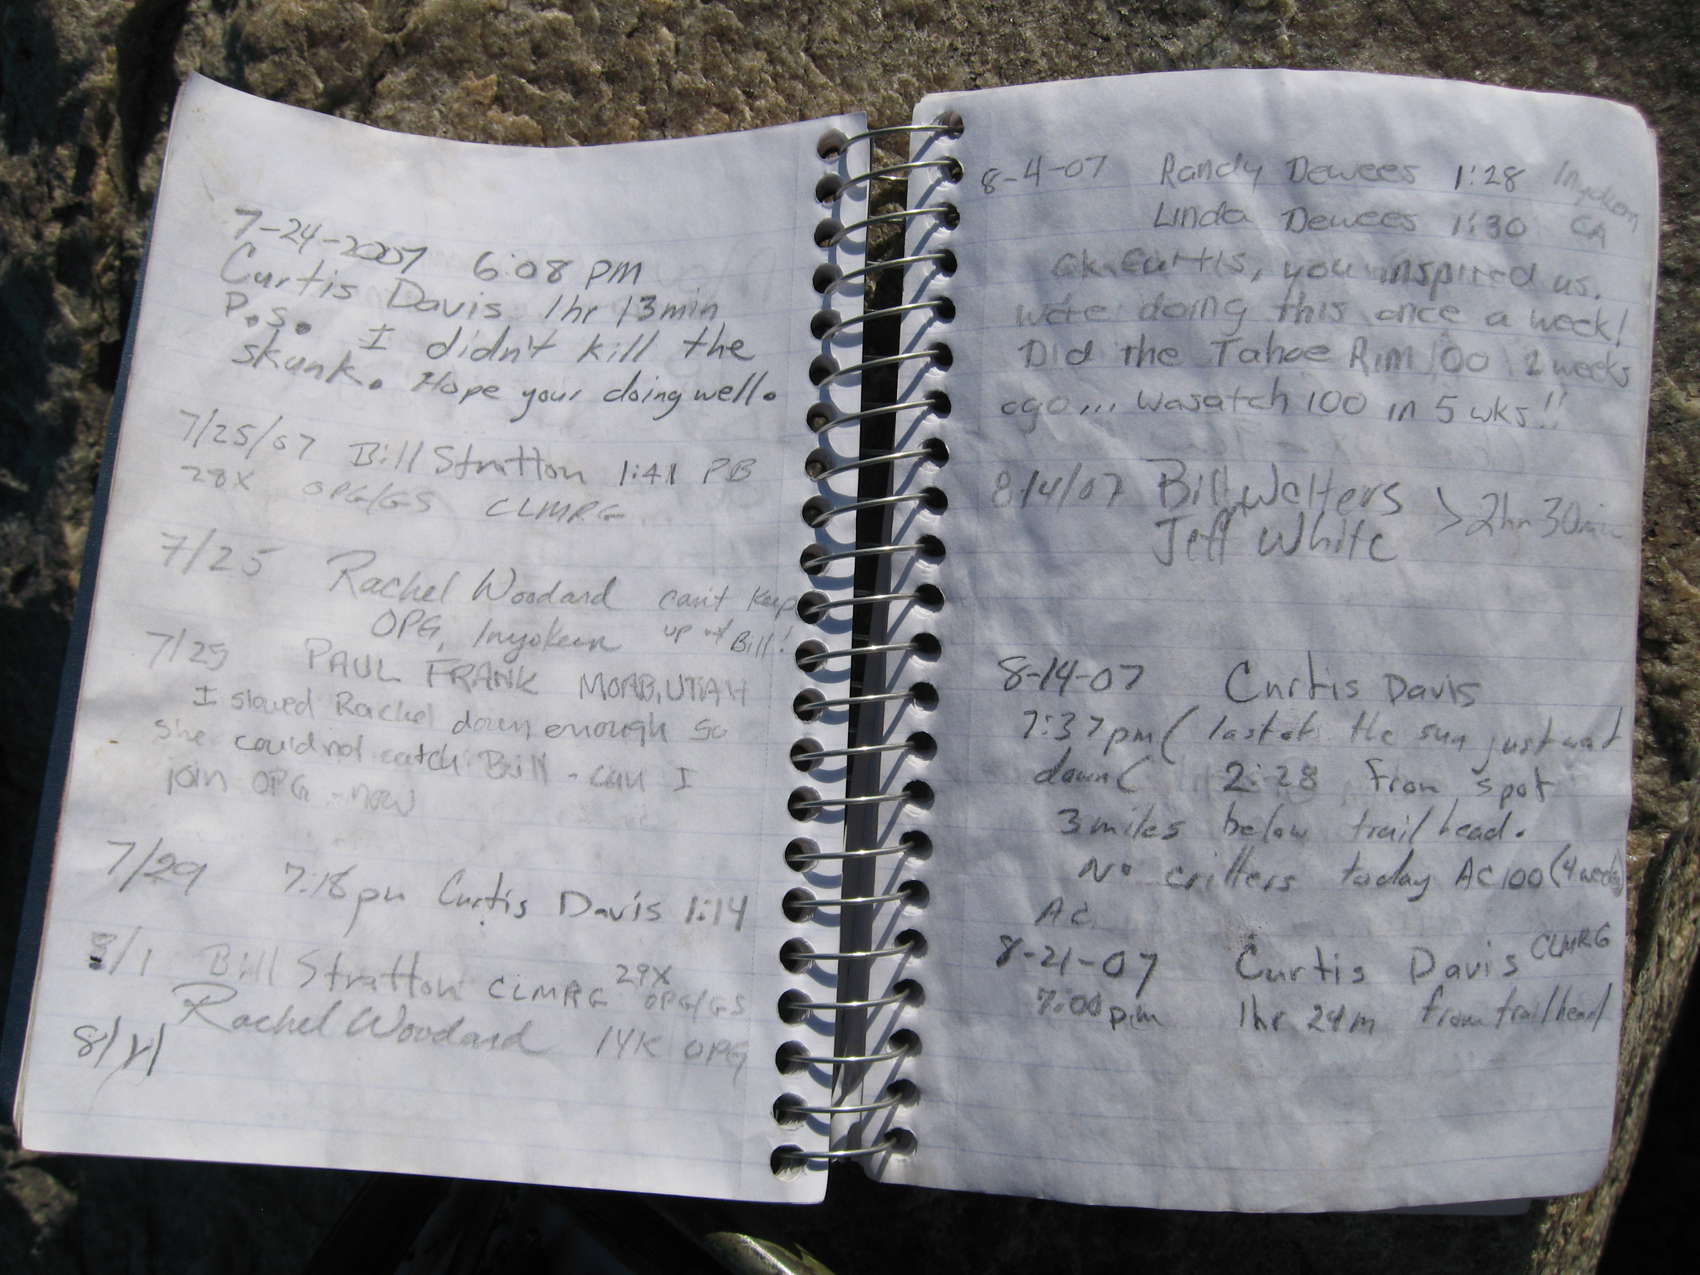 7-24-2007 6:08 PM
Curtis Davis 1hr 13min
P.S. I didn't kill the
skunk. Hope your doing well.
7/25/07 Bill Stratton 1:41 PB
28X OPG/GS CLMRG
7/25 Rachel Woodard can't keep
OPG, Inyokern up w/ Bill!
7/25 PAUL FRANK MOAB, UTAH
I slowed Rachel down enough so
she could not catch Bill - can I
join OPG - now
7/29 7:18 pm Curtis Davis 1:14
8/1 Bill Stratton CLMRG 29X OPG/GS
Rachel Woodard 14X OPG
8/1
8-4-07 Randy Dewees 1:28 Inyokern
Linda Dewees 1:30 CA
Ok Curtis, you inspired us.
We're doing this once a week!
Did the Tahoe Rim 100 2 weeks
ago... Wasatch 100 in 5 wks!!
8/14/07 Bill Walters > 2hr 30min
Jeff White
8-14-07 Curtis Davis
7:37pm ( last of the sun just went
down ( 2:28 from spot
3 miles below trail head.
No critters today AC100 (4 weeks)
AC
8-21-07 Curtis Davis CLMRG
7:00 pm 1hr 24m from trailhead